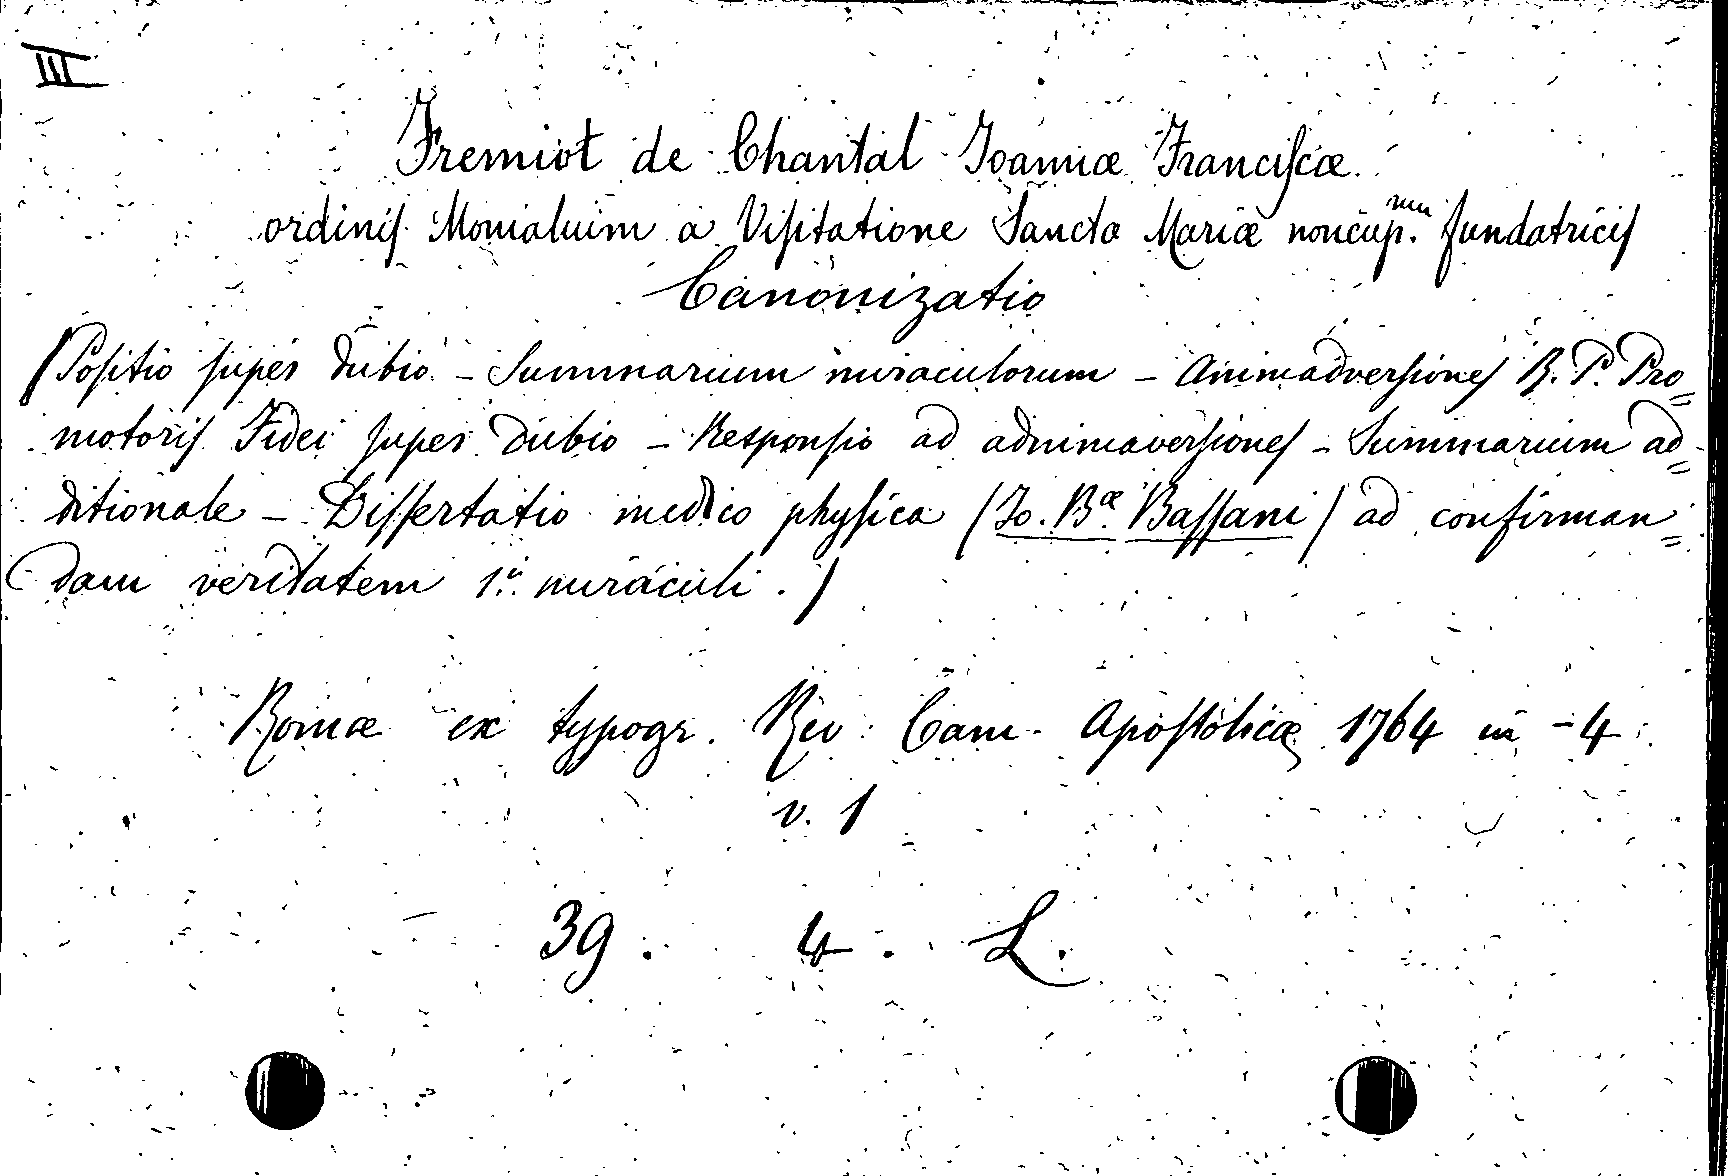 III
Fremiot de Chantal Joannæ Franciſcæ
ordiniſ Monialium a Viſitatione Sancta Mariæ noncup.num fundatriciſ
Canonizatio
(Poſitio ſuper dubio - Summarium miraculorum - Animadverſioneſ R. P. Pro=
motoriſ Fidei ſuper dubio - Reſponſio ad adnimaverſioneſ - Summarium ad=
ditionale - Diſſertatio medico phyſica (Jo. Bæ Baſſani) ad confirman=
dam veritatem 1i miraculi.)
Romæ ex typogr. Rev. Cam. Apoſtolicæ 1764 in-4.
v. 1
39. 4. L.